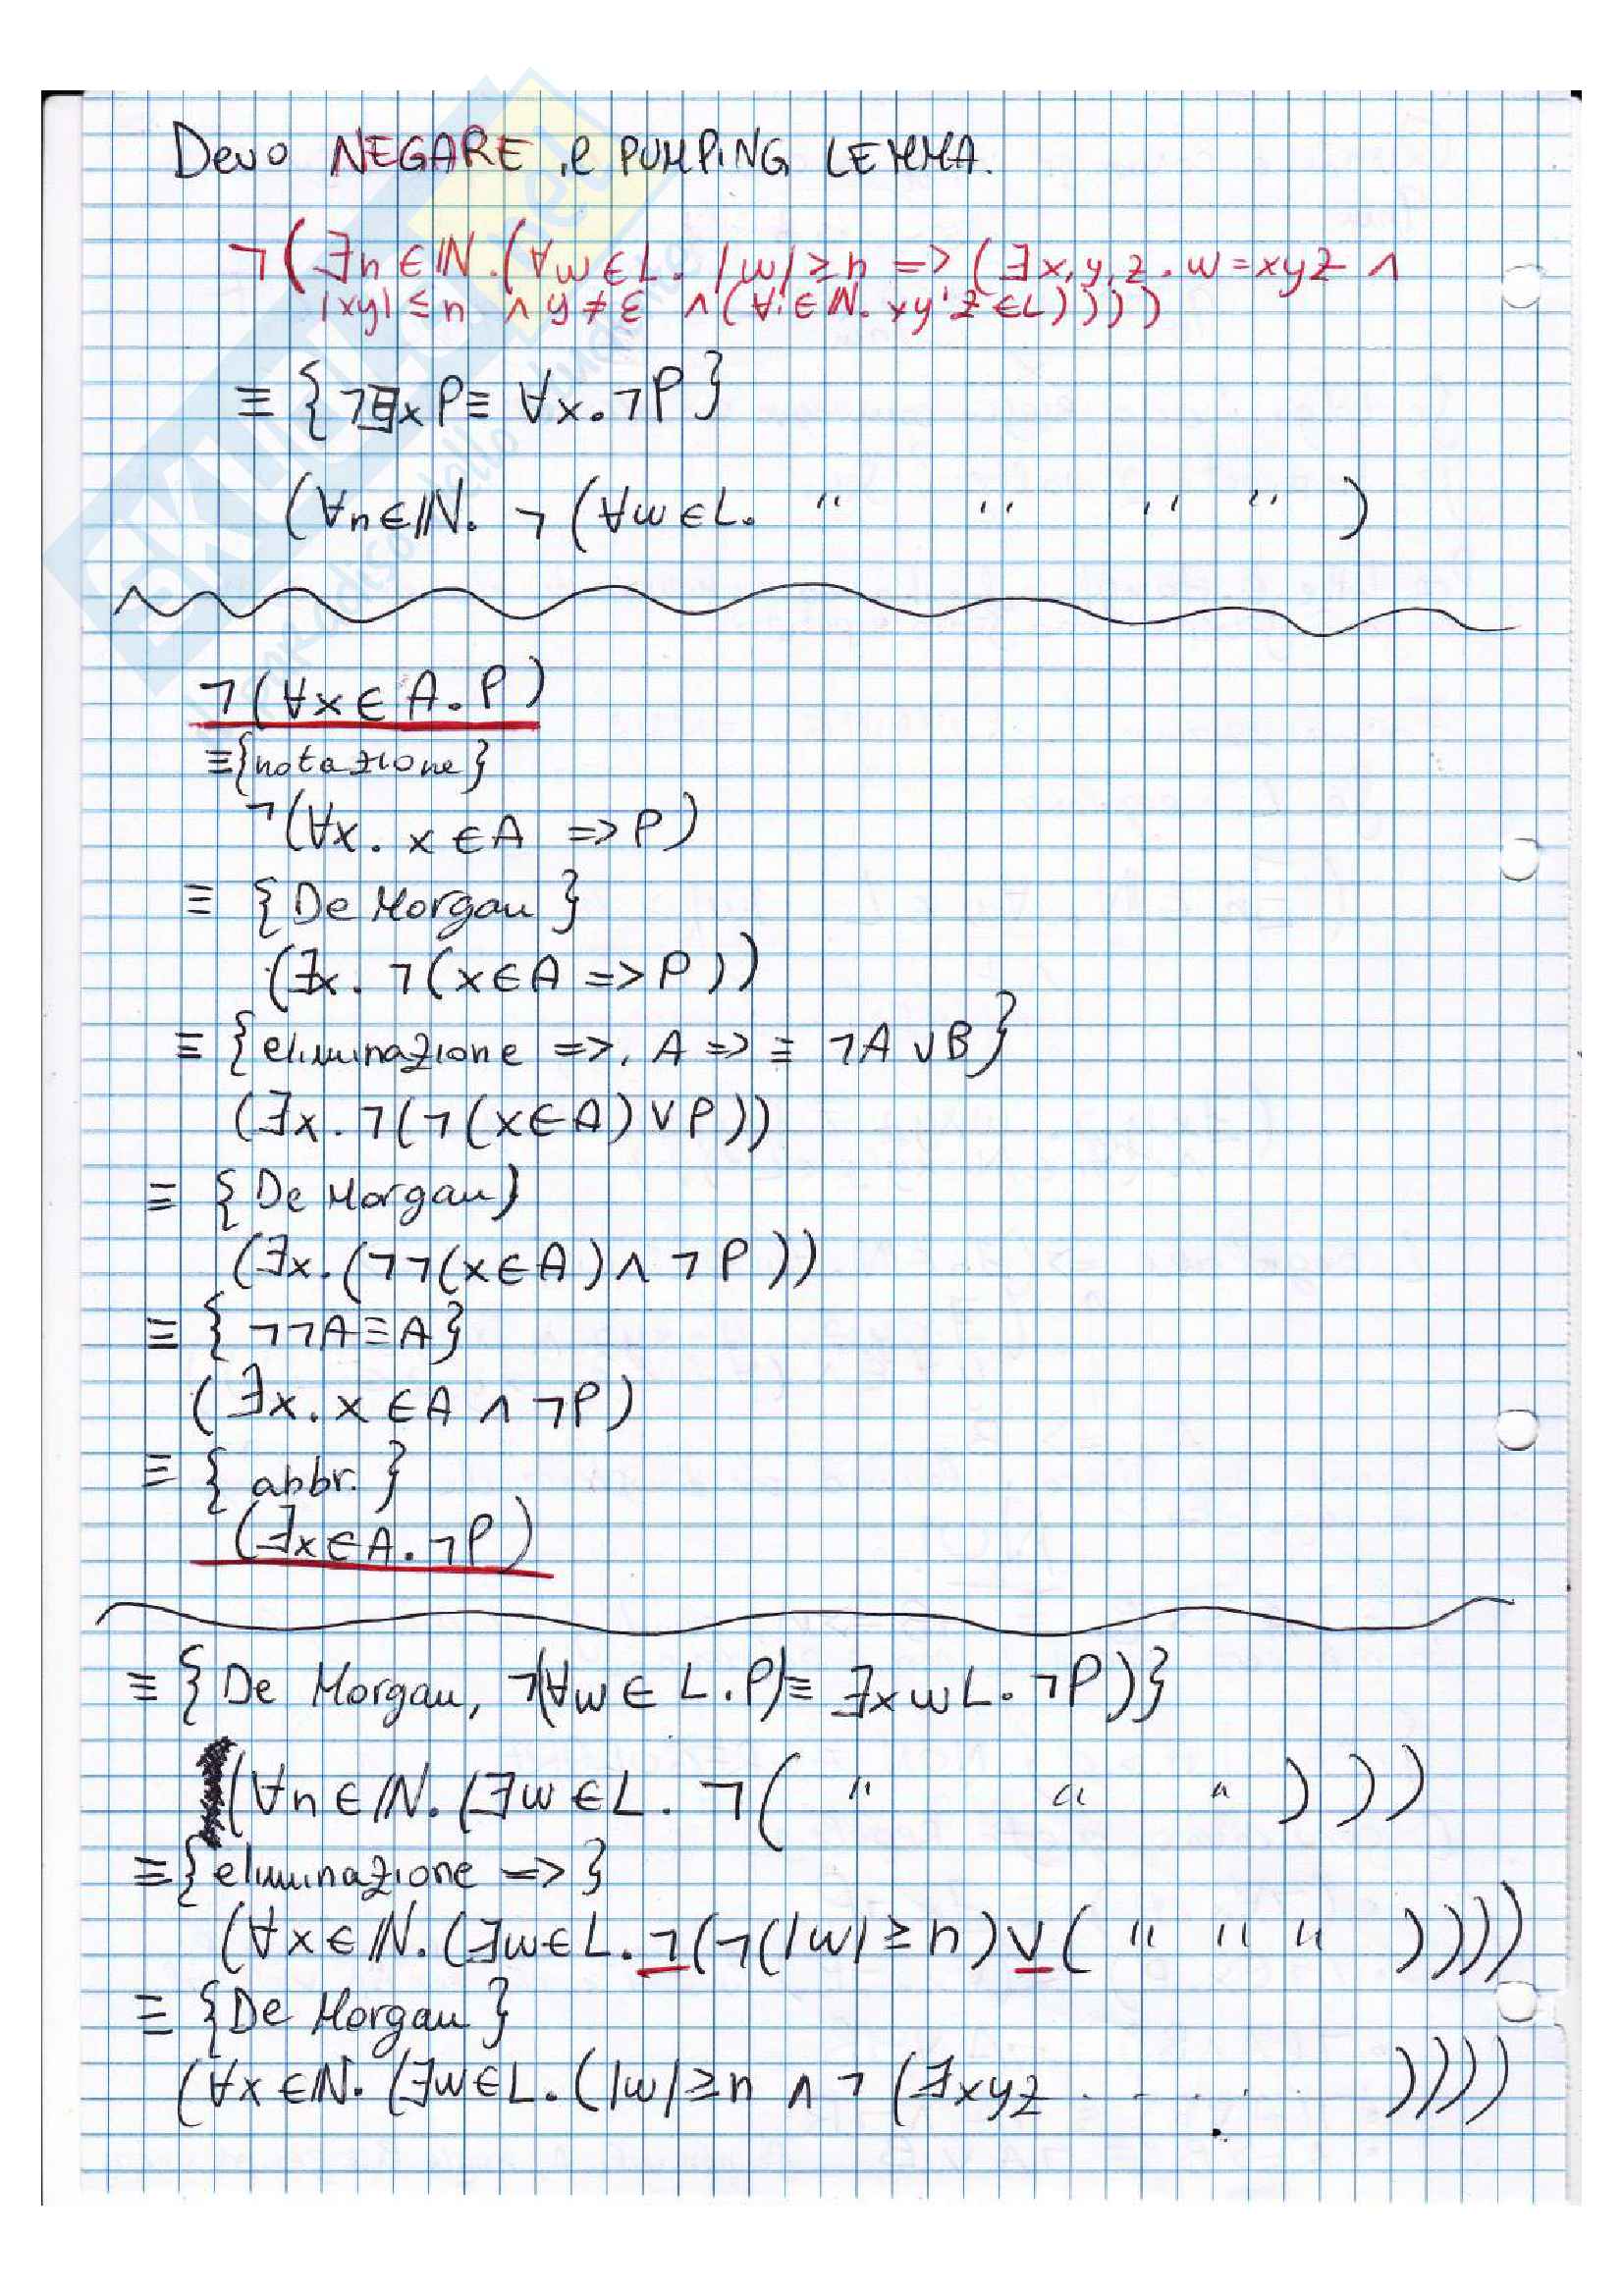 Devo NEGARE il PUMPING LEMMA.
¬(∃n∈ℕ.(∀w∈L. |w|≥n => (∃x,y,z. w=xyz ∧
|xy|≤n ∧ y≠ε ∧ (∀i∈ℕ. xyⁱz∈L))))
≡ {¬∃xP≡ ∀x.¬P}
(∀n∈ℕ. ¬(∀w∈L. " " " " )
¬(∀x∈A.P)
≡{notazione}
¬(∀x. x∈A => P)
≡ {De Morgan}
(∃x. ¬(x∈A => P))
≡ {eliminazione =>, A => ≡ ¬A ∨B}
(∃x.¬(¬(x∈A)∨P))
≡ {De Morgan}
(∃x.(¬¬(x∈A)∧¬P))
≡ {¬¬A≡A}
(∃x.x∈A ∧ ¬P)
≡ {abbr.}
(∃x∈A.¬P)
≡ {De Morgan, ¬(∀w∈L.P)≡ ∃xwL.¬P)}
(∀n∈ℕ.(∃w∈L. ¬( " " " )))
≡{eliminazione =>}
(∀x∈ℕ.(∃w∈L.¬(¬(|w|≥n)∨( " " " ))))
≡ {De Morgan}
(∀x∈ℕ.(∃w∈L.(|w|≥n ∧ ¬(∃xyz . . . . . ))))